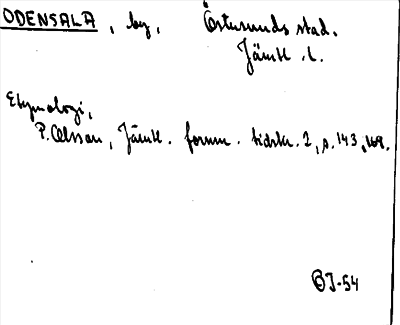 ODENSALA, by, Östersunds stad.
Jämtl. l.
Etymologi,
P. Olsson, Jämtl. fornm. tidskr. 2, s. 143, 168.
OJ-54